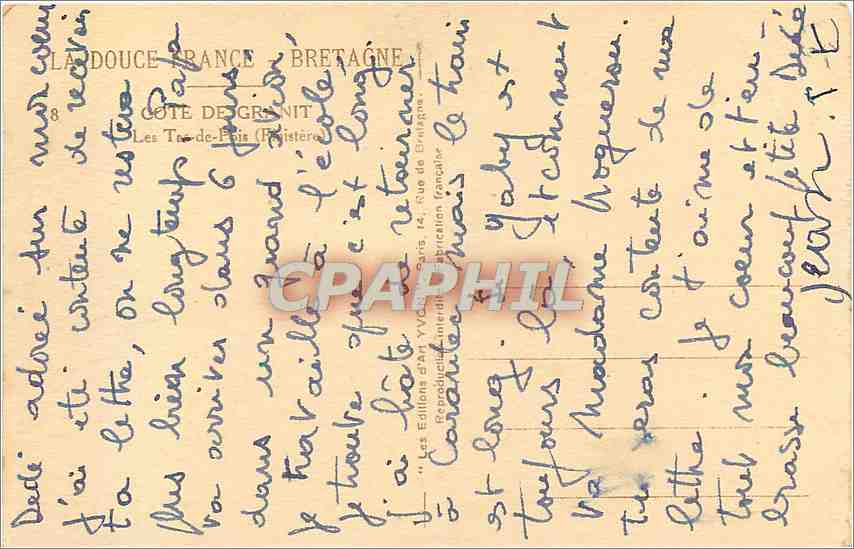 LA DOUCE FRANCE - BRETAGNE
8 COTE DE GRANIT
Les Tas-de-Pois (Finistère)
" Les Editions d'Art YVON Paris, 14, Rue de Bretagne.
Reproduction interdite Fabrication française
CPAPHIL
Dédé adoré sur mon coeur
j'ai été contente de recevoir
ta lettre, on ne restera
plus bien longtemps Papa
va arriver dans 6 jours
dans un grand avion,
je travaille à l'école
je trouve que c'est long,
j'ai hâte de retourner
à Carantec mais le train
est long. Gaby est
toujours là, et comment
va Madame
tu seras contente de ma
lettre. je t'aime de
tout mon coeur et t'em-
brasse beaucoup petite Dédé